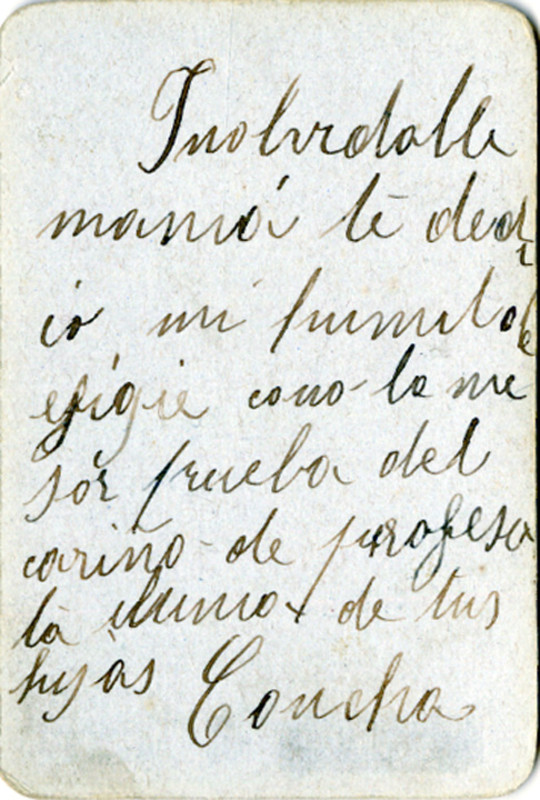 Inolvidable
mamá te dedi
co mi humilde
efigie como la me
jor prueba del
cariño de profesa
la última de tus
hijas Concha